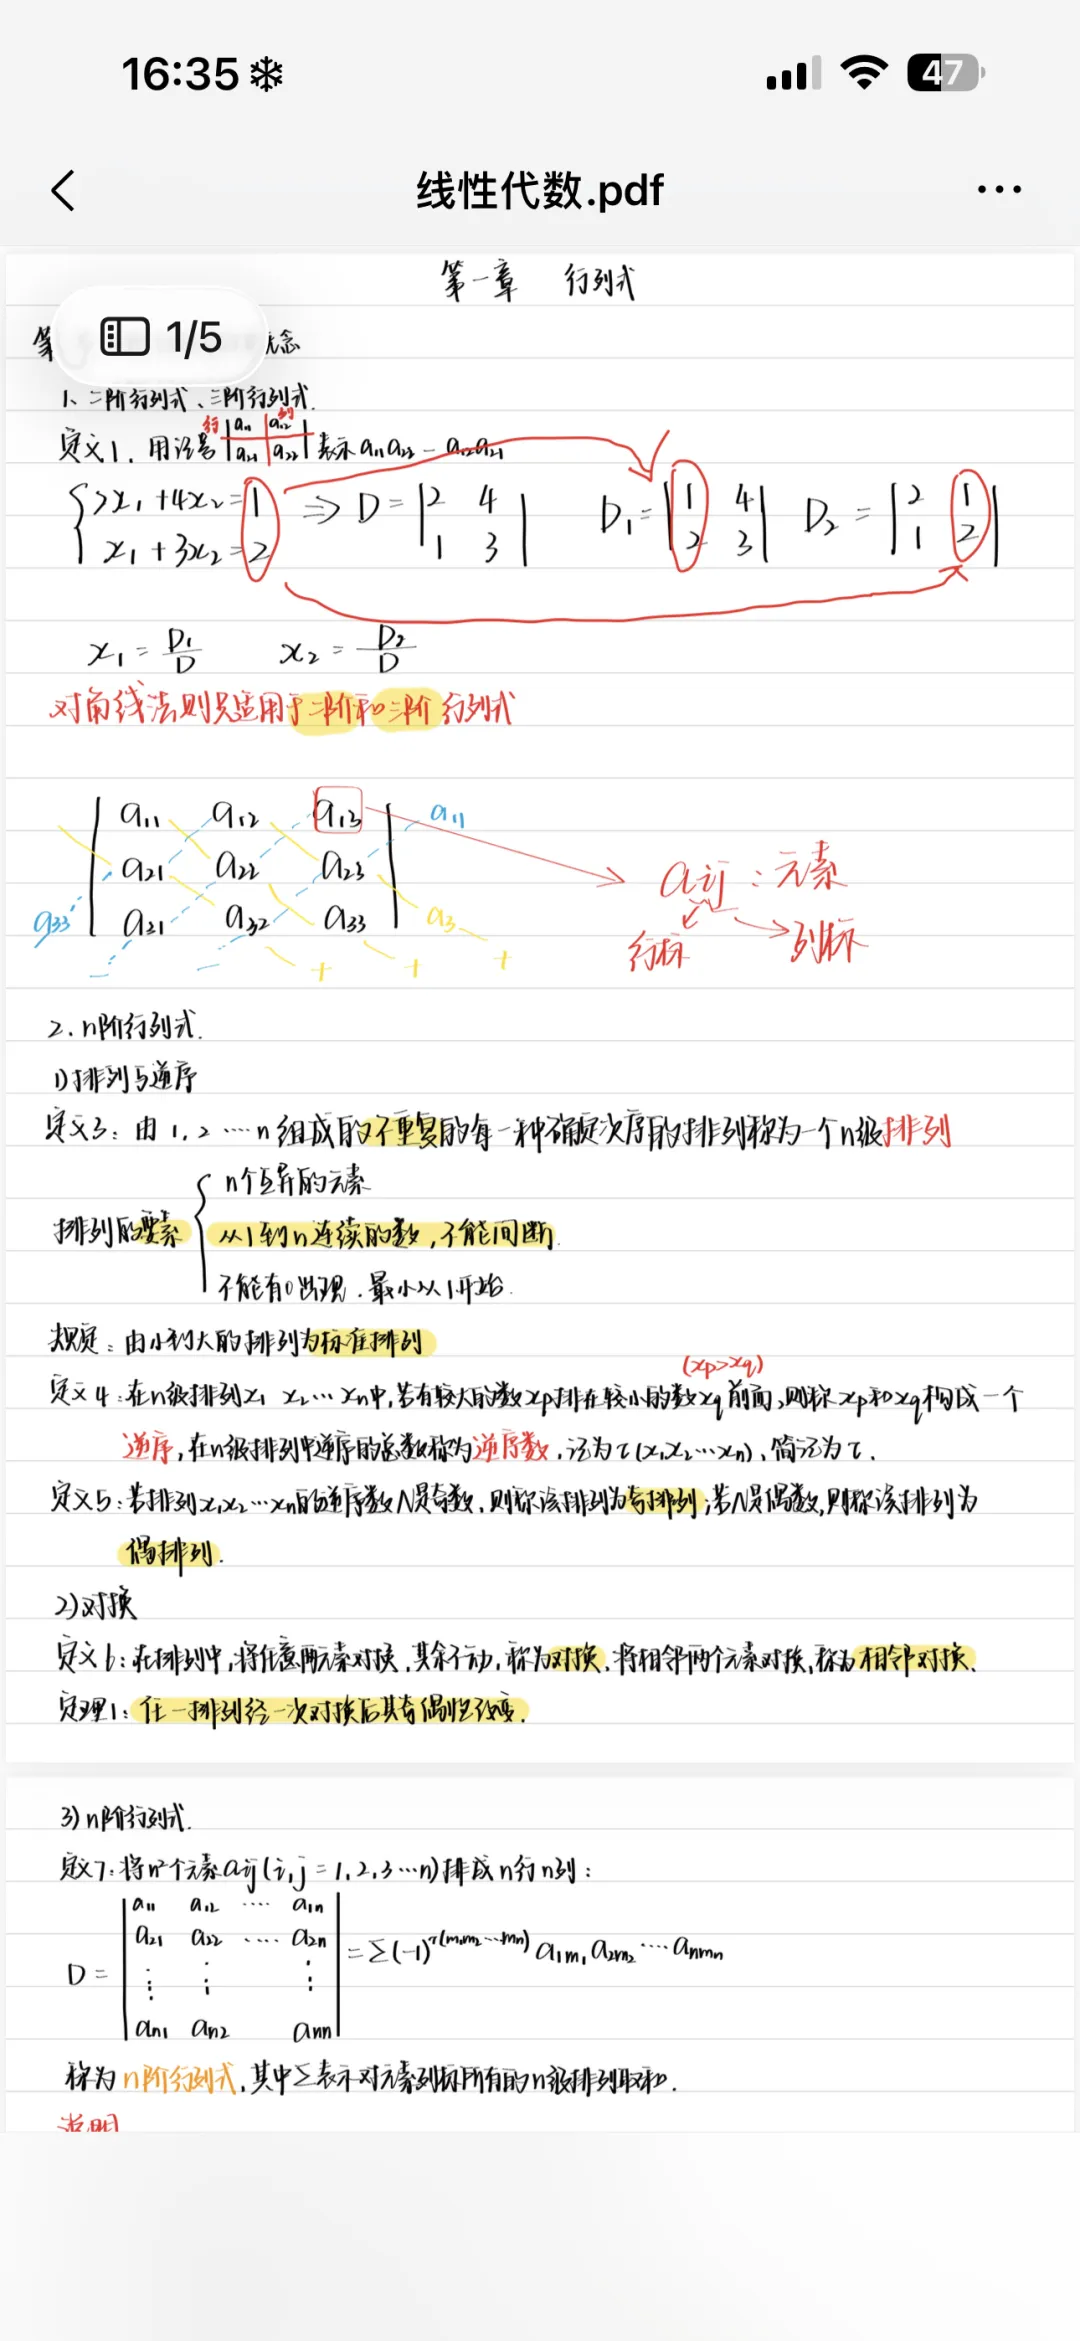 16:35
47
线性代数.pdf
第一章 行列式
1/5
第 念
1、二阶行列式、三阶行列式.
行 列
定义1. 用记号 |a11 a12 a21 a22| 表示 a11a22 - a12a21
{2x1+4x2=1 x1+3x2=2 ⇒ D=|2 4 1 3| D1=|1 4 2 3| D2=|2 1 1 2|
x1=D1/D x2=D2/D
对角线法则只适用于二阶和三阶行列式
a11 a12 a13 a11
a21 a22 a23
a33 a21 a32 a33 a3
- - + + +
aij:元素
行标 列标
2.n阶行列式.
1)排列与逆序
定义3:由1,2……n组成的不重复的每一种确定次序的排列称为一个n级排列
n个互异的元素
排列的要素 { 从1到n连续的数,不能间断.
不能有0出现.最小从1开始.
规定:由小到大的排列为标准排列
(xp>xq)
定义4:在n级排列x1 x2…xn中,若有较大的数xp排在较小的数xq前面,则称xp和xq构成一个
逆序,在n级排列中逆序的总数称为逆序数,记为τ(x1x2…xn),简记为τ.
定义5:若排列x1x2…xn的逆序数N是奇数,则称该排列为奇排列;若N是偶数,则称该排列为
偶排列.
2)对换
定义6:在排列中,将任意两元素对换,其余不动,称为对换,将相邻两个元素对换,称为相邻对换.
定理1:任一排列经一次对换后其奇偶性改变.
3)n阶行列式.
定义7:将n²个元素aij(i,j=1,2,3…n)排成n行n列:
a11 a12 …. a1n
a21 a22 …. a2n
D= ⋮ ⋮ ⋮ =Σ(-1)^τ(m1m2…mn) a1m1 a2m2 … anmn
an1 an2 ann
称为n阶行列式,其中Σ表示对元素列标所有的n级排列取和.
说明